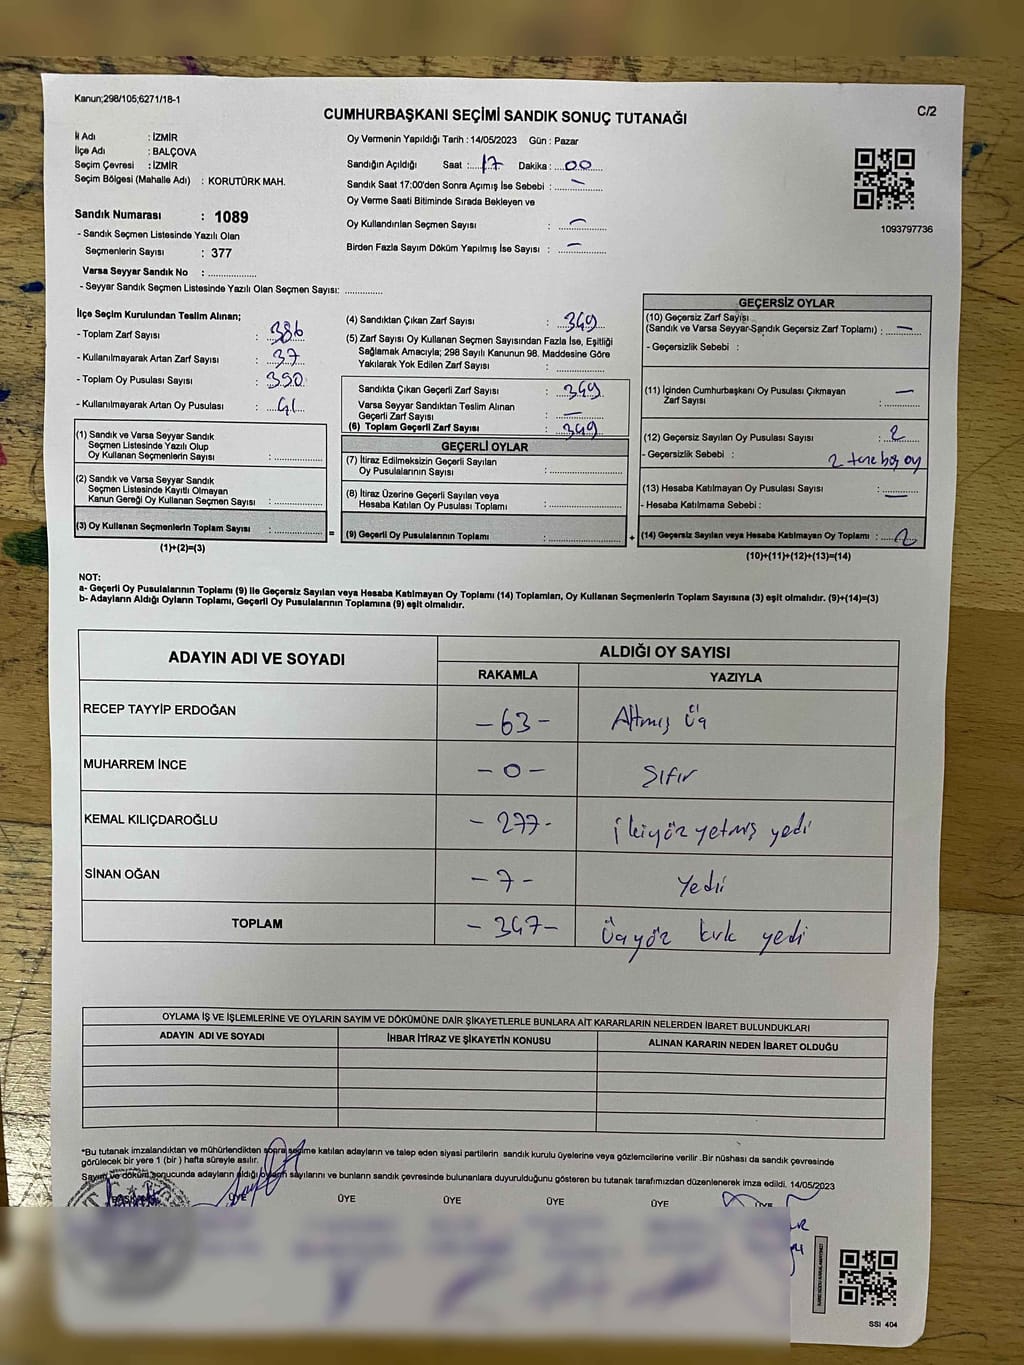 Kanun;298/105;6271/18-1
C/2
CUMHURBAŞKANI SEÇİMİ SANDIK SONUÇ TUTANAĞI
İl Adı : İZMİR
İlçe Adı : BALÇOVA
Seçim Çevresi : İZMİR
Seçim Bölgesi (Mahalle Adı) : KORUTÜRK MAH.
Sandık Numarası : 1089
- Sandık Seçmen Listesinde Yazılı Olan
Seçmenlerin Sayısı : 377
Varsa Seyyar Sandık No : ................
- Seyyar Sandık Seçmen Listesinde Yazılı Olan Seçmen Sayısı: .............
Oy Vermenin Yapıldığı Tarih : 14/05/2023 Gün : Pazar
Sandığın Açıldığı Saat :....17... Dakika :....00...
Sandık Saat 17:00'den Sonra Açımış İse Sebebi : —
Oy Verme Saati Bitiminde Sırada Bekleyen ve
Oy Kullandırılan Seçmen Sayısı : —
Birden Fazla Sayım Döküm Yapılmış İse Sayısı : —
1093797736
İlçe Seçim Kurulundan Teslim Alınan;
- Toplam Zarf Sayısı : 386
- Kullanılmayarak Artan Zarf Sayısı : 37
- Toplam Oy Pusulası Sayısı : 390
- Kullanılmayarak Artan Oy Pusulası : 41
(1) Sandık ve Varsa Seyyar Sandık
Seçmen Listesinde Yazılı Olup
Oy Kullanan Seçmenlerin Sayısı : ..............
(2) Sandık ve Varsa Seyyar Sandık
Seçmen Listesinde Kayıtlı Olmayan
Kanun Gereği Oy Kullanan Seçmen Sayısı : ..............
(3) Oy Kullanan Seçmenlerin Toplam Sayısı : ..............
(1)+(2)=(3)
(4) Sandıktan Çıkan Zarf Sayısı : 349
(5) Zarf Sayısı Oy Kullanan Seçmen Sayısından Fazla İse, Eşitliği
Sağlamak Amacıyla; 298 Sayılı Kanunun 98. Maddesine Göre
Yakılarak Yok Edilen Zarf Sayısı : ..............
Sandıkta Çıkan Geçerli Zarf Sayısı : 349
Varsa Seyyar Sandıktan Teslim Alınan
Geçerli Zarf Sayısı : —
(6) Toplam Geçerli Zarf Sayısı : 349
GEÇERLİ OYLAR
(7) İtiraz Edilmeksizin Geçerli Sayılan
Oy Pusulalarının Sayısı : ..............
(8) İtiraz Üzerine Geçerli Sayılan veya
Hesaba Katılan Oy Pusulası Toplamı : ..............
= (9) Geçerli Oy Pusulalarının Toplamı : .............. +
GEÇERSİZ OYLAR
(10) Geçersiz Zarf Sayısı
(Sandık ve Varsa Seyyar Sandık Geçersiz Zarf Toplamı) : —
- Geçersizlik Sebebi :
(11) İçinden Cumhurbaşkanı Oy Pusulası Çıkmayan
Zarf Sayısı : —
(12) Geçersiz Sayılan Oy Pusulası Sayısı : 2
- Geçersizlik Sebebi : 2 tane boş oy
(13) Hesaba Katılmayan Oy Pusulası Sayısı : —
- Hesaba Katılmama Sebebi :
(14) Geçersiz Sayılan veya Hesaba Katılmayan Oy Toplamı : 2
(10)+(11)+(12)+(13)=(14)
NOT:
a- Geçerli Oy Pusulalarının Toplamı (9) ile Geçersiz Sayılan veya Hesaba Katılmayan Oy Toplamı (14) Toplamları, Oy Kullanan Seçmenlerin Toplam Sayısına (3) eşit olmalıdır. (9)+(14)=(3)
b- Adayların Aldığı Oyların Toplamı, Geçerli Oy Pusulalarının Toplamına (9) eşit olmalıdır.
ADAYIN ADI VE SOYADI
ALDIĞI OY SAYISI
RAKAMLA YAZIYLA
RECEP TAYYİP ERDOĞAN -63- Altmış üç
MUHARREM İNCE -0- Sıfır
KEMAL KILIÇDAROĞLU -277- ikiyüz yetmiş yedi
SİNAN OĞAN -7- Yedi
TOPLAM -347- Üçyüz kırk yedi
OYLAMA İŞ VE İŞLEMLERİNE VE OYLARIN SAYIM VE DÖKÜMÜNE DAİR ŞİKAYETLERLE BUNLARA AİT KARARLARIN NELERDEN İBARET BULUNDUKLARI
ADAYIN ADI VE SOYADI İHBAR İTİRAZ VE ŞİKAYETİN KONUSU ALINAN KARARIN NEDEN İBARET OLDUĞU
*Bu tutanak imzalandıktan ve mühürlendikten sonra seçime katılan adayların ve talep eden siyasi partilerin sandık kurulu üyelerine veya gözlemcilerine verilir .Bir nüshası da sandık çevresinde
görülecek bir yere 1 (bir ) hafta süreyle asılır.
Sayım ve döküm sonucunda adayların aldığı oyların sayılarını ve bunların sandık çevresinde bulunanlara duyurulduğunu gösteren bu tutanak tarafımızdan düzenlenerek imza edildi. 14/05/2023
BAŞKAN ÜYE ÜYE ÜYE ÜYE ÜYE ÜYE
SSI 404